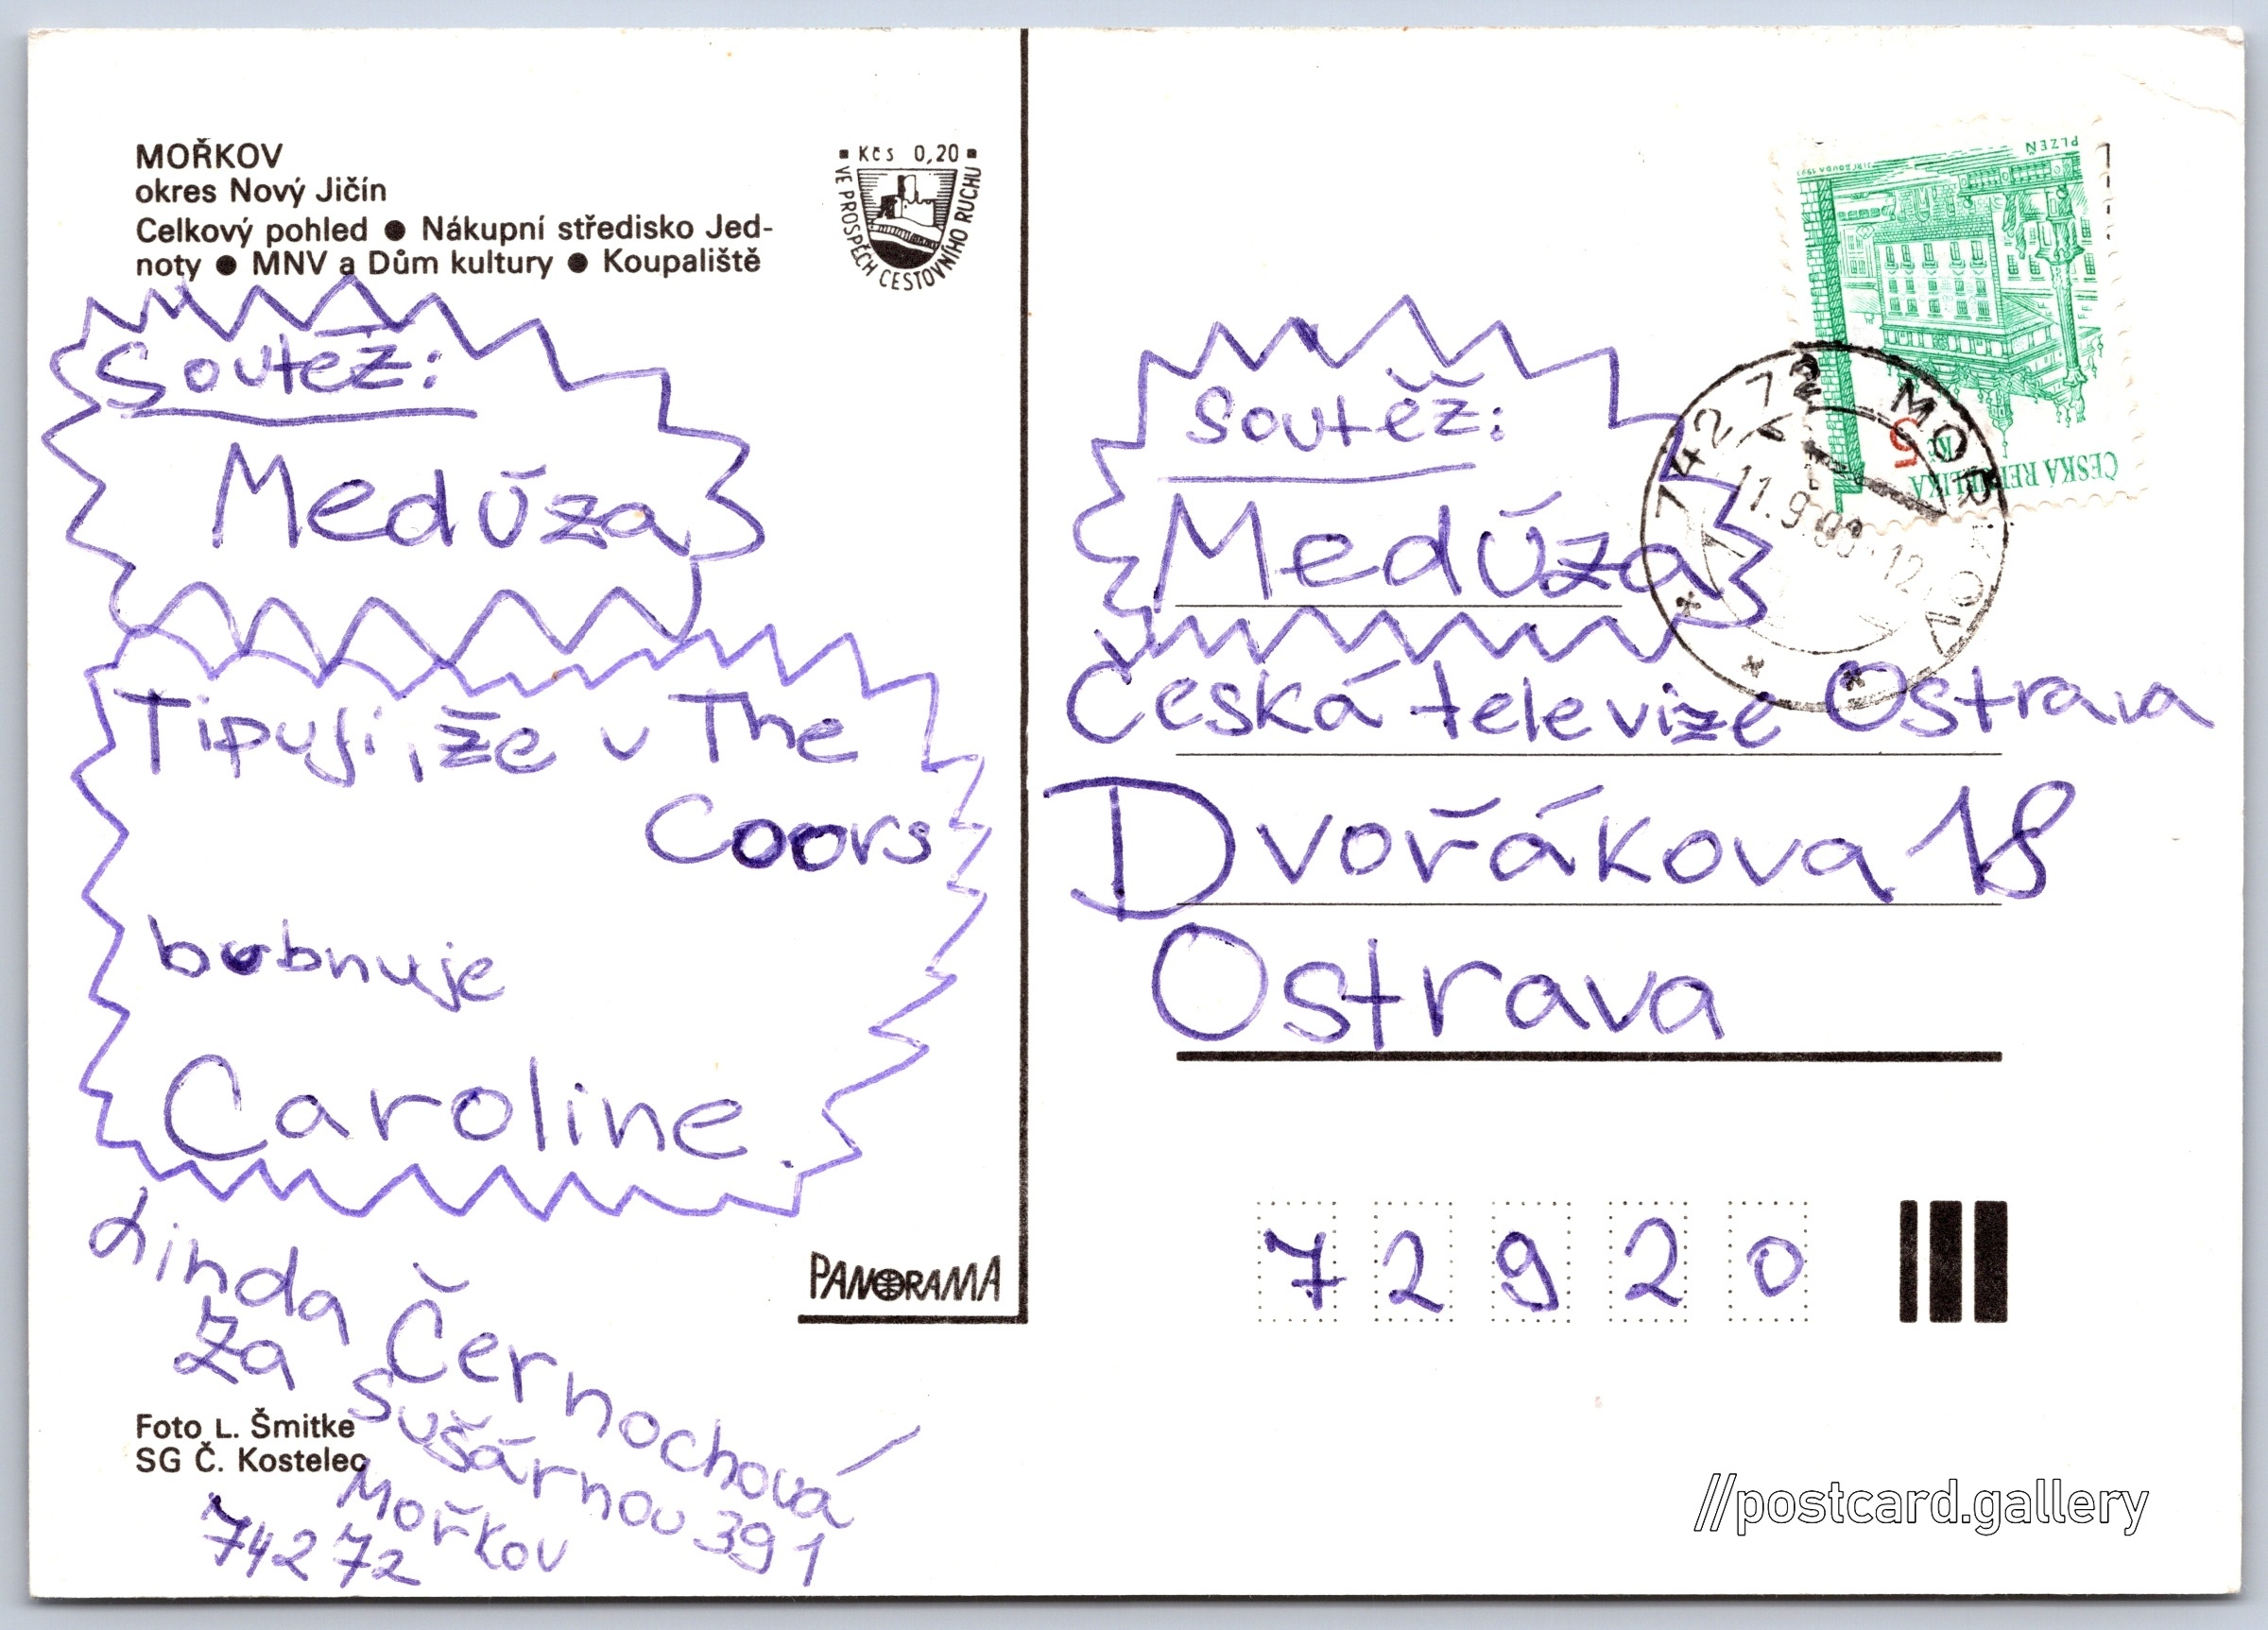 MOŘKOV
okres Nový Jičín
Celkový pohled ● Nákupní středisko Jed-
noty ● MNV a Dům kultury ● Koupaliště
▪ Kčs 0,20 ▪
VE PROSPĚCH CESTOVNÍHO RUCHU
Soutěž:
Medúza
Tipuji, že v The
Coors
bubnuje
Caroline.
Linda Černochová
Za Sušárnou 391
Mořkov
742 72
PANORAMA
Foto L. Šmitke
SG Č. Kostelec
PLZEŇ
5 Kč
ČESKÁ REPUBLIKA
742 72 MOŘKOV
Soutěž:
Medúza
Česká televize Ostrava
Dvořákova 18
Ostrava
72920
//postcard.gallery